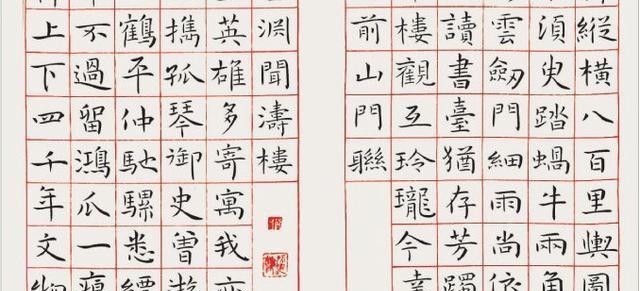 縱橫八百里輿圖
須臾踏蝸牛兩角
雲劔門細雨尚依
讀書臺猶存芳躅
樓觀互玲瓏今幸
前山門聯
渊聞濤樓
英雄多寄寓我亦
攜孤琴御史曾遊
鶴平仲馳騾悉縹
不過留鴻爪一痕
上下四千年文物